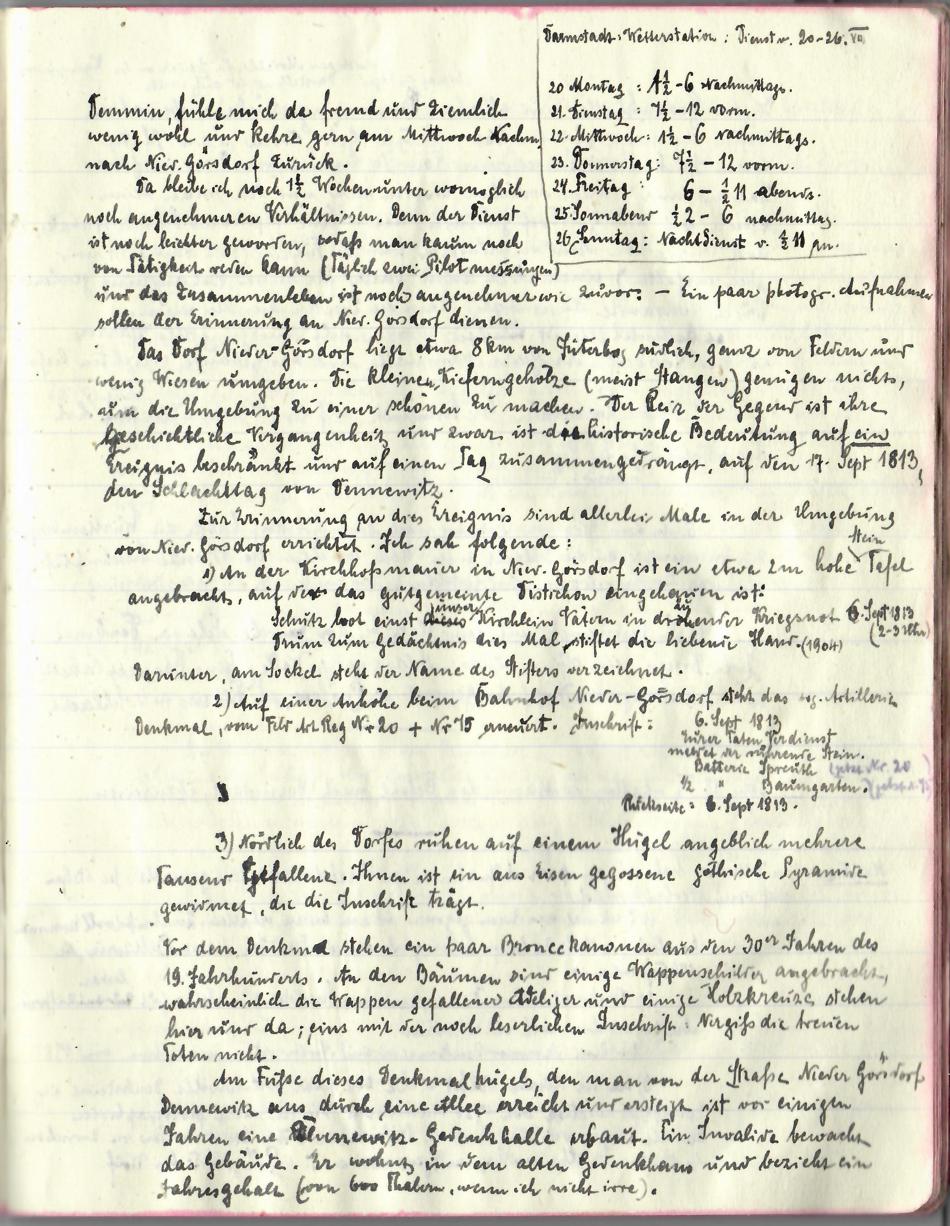 Darmstadt: Wetterstation: Dienst v. 20-26. VII
20 Montag : 1½-6 Nachmittags.
21. Dienstag : 7½-12 vorm.
22. Mittwoch : 1½-6 nachmittags.
23. Donnerstag : 7½-12 vorm.
24. Freitag : 6-½11 abends.
25. Sonnabend ½2-6 nachmittag.
26. Sonntag : Nachtdienst v. ½11 an.
Demmin, fühle mich da fremd und ziemlich
wenig wohl und kehre gern am Mittwoch Nachm
nach Nied. Görsdorf zurück.
Da bleibe ich noch 1½ Wochen unter womöglich
noch angenehmeren Verhältnissen. Denn der Dienst
ist noch leichter geworden, sodaß man kaum noch
von Tätigkeit reden kann (täglich zwei Pilotmessungen)
und das Zusammenleben ist noch angenehmer wie zuvor. — Ein paar photogr. Aufnahmen
sollen der Erinnerung an Nied. Görsdorf dienen.
Das Dorf Nieder-Görsdorf liegt etwa 8km von Jüterbog südlich, ganz von Feldern und
wenig Wiesen umgeben. Die kleinen Kieferngehölze (meist Stangen) genügen nichts,
um die Umgebung zu einer schönen zu machen. Der Reiz der Gegend ist ihre
geschichtliche Vergangenheit, und zwar ist die historische Bedeutung auf ein
Ereignis beschränkt und auf einen Tag zusammengedrängt, auf den 17. Sept 1813,
den Schlachttag von Dennewitz.
Zur Erinnerung an dies Ereignis sind allerlei Male in der Umgebung
von Nied. Görsdorf errichtet. Ich sah folgende:
1) An der Kirchhofsmauer in Nied. Görsdorf ist ein etwa 2m hohe Stein Tafel
angebracht, auf der das gutgemeinte Distichon eingehauen ist:
Schutz bot einst unser Kirchlein Vätern in drohender Kriegsnot 6. Sept 1813
(2-3 Uhr)
Drum zum Gedächtnis dies Mal, stiftet die liebende Hand. (1904)
Darunter, am Sockel steht der Name des Stifters verzeichnet.
2) Auf einer Anhöhe beim Bahnhof Nieder-Görsdorf steht das sog. Artillerie
Denkmal, vom Feld Art. Reg Nr 20 + Nr 75 erneuert. Inschrift: 6. Sept 1813
Eurer Taten Verdienst
meldet der rührende Stein.
Batterie Spreuth (jetzt Nr. 20)
½ " Baumgarten.
Rückseite: 6. Sept 1813.
3) Nördlich des Dorfes ruhen auf einem Hügel angeblich mehrere
Tausend Gefallene. Ihnen ist ein aus Eisen gegossene gothische Pyramide
gewidmet, die die Inschrift trägt.
Vor dem Denkmal stehen ein paar Broncekanonen aus den 30er Jahren des
19. Jahrhunderts. An den Bäumen sind einige Wappenschilder angebracht,
wahrscheinlich die Wappen gefallener Adeliger und einige Holzkreuze stehen
hier und da; eins mit der noch leserlichen Inschrift: Vergiß die treuen
Toten nicht.
Am Fuße dieses Denkmalhügels, den man von der Straße Nieder Görsdorf
Dennewitz aus durch eine Allee erreicht und ersteigt ist vor einigen
Jahren eine Dennewitz-Gedenkhalle erbaut. Ein Invalide bewacht
das Gebäude. Er wohnt in dem alten Gedenkhaus und bezieht ein
Jahresgehalt (von 600 Thalern, wenn ich nicht irre).